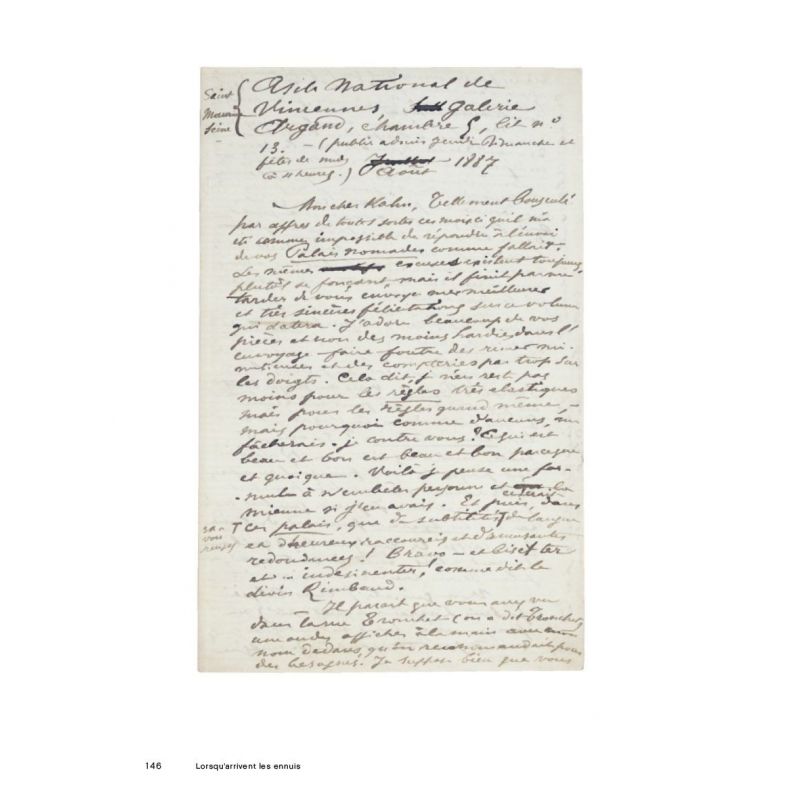 Saint
Maurice
Seine
Asile National de
Vincennes Galerie
Argand, chambre 5, lit n°
13. – (public admis jeudi Dimanche et
fêtes de midi 1887
à 4 heures.) Août
Mon cher Kahn, Tellement bousculé
par affres de toutes sortes ces mois ci qu'il m'a
été comme impossible de répondre à l'envoi
de vos Palais nomades comme fallait.
Les mêmes excuses existent toujours,
plutôt se fonçant, mais il finit par me
tarder de vous envoyer mes meilleures
et très sincères félicitations sur ce volume
qui datera. J'adore beaucoup de vos
pièces et non des moins hardies dans l'
envoyage faire foutre des rimes mi-
nutieuses et des compteries par trop sur
les doigts. Cela dit, j'n'en rest pas
moins pour les règles très élastiques
mais pour les règles quand même, –
mais pourquoi comme d'aucuns, m'
fâcherais-je contre vous? Ce qui est
beau et bon est beau et bon parceque
et quoique. Voilà j'pense une for-
mule à n'embêter personne et ce serait la
mienne si j'en avais. Et puis, dans
ces palais, que de subtilités de langue
et d'heureux raccourcis et d'amusantes
redondances! Bravo – et bis et ter
et – indesinenter! comme dit le
divin Rimbaud.
Il paraît que vous avez vu
dans la rue Tronchet (on a dit Tronchet)
une ou des affiches à la main
nom dedans, qu'on recommandait pour
des besognes. Je suppose bien que vous
146 Lorsqu'arrivent les ennuis